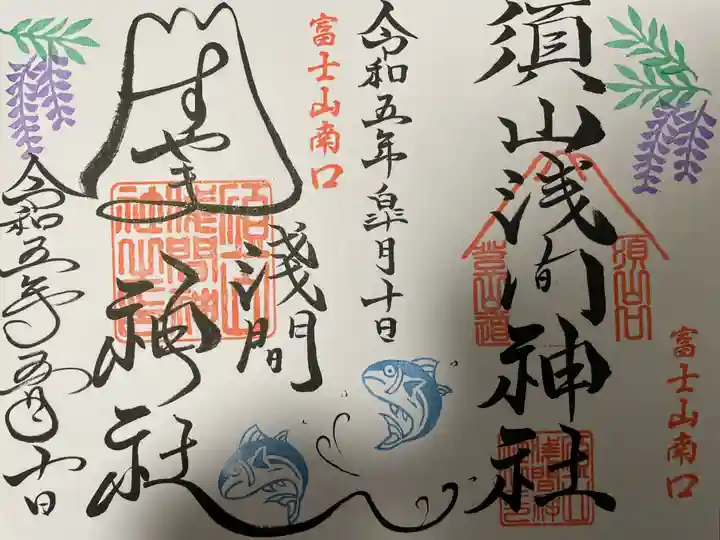 富士山南口
須山浅間神社
須山口
登山道
令和五年皐月十日
富士山南口
すやま
浅間
神社
令和五年五月十日